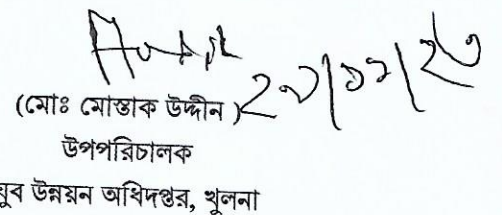 (মোঃ মোস্তাক উদ্দীন)
উপপরিচালক
যুব উন্নয়ন অধিদপ্তর, খুলনা